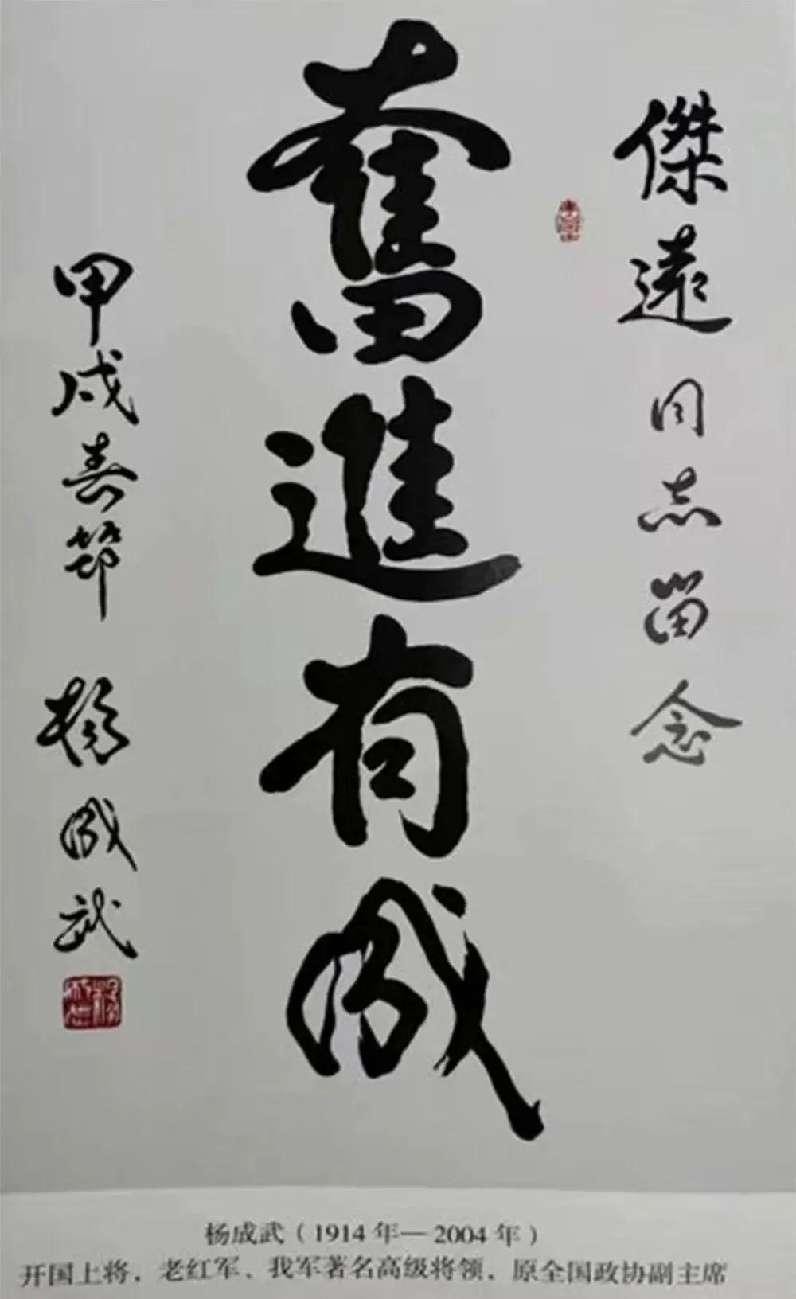 傑遠同志留念
奮進有成
甲戌春節 楊成武
杨成武（1914年—2004年）
开国上将，老红军、我军著名高级将领，原全国政协副主席